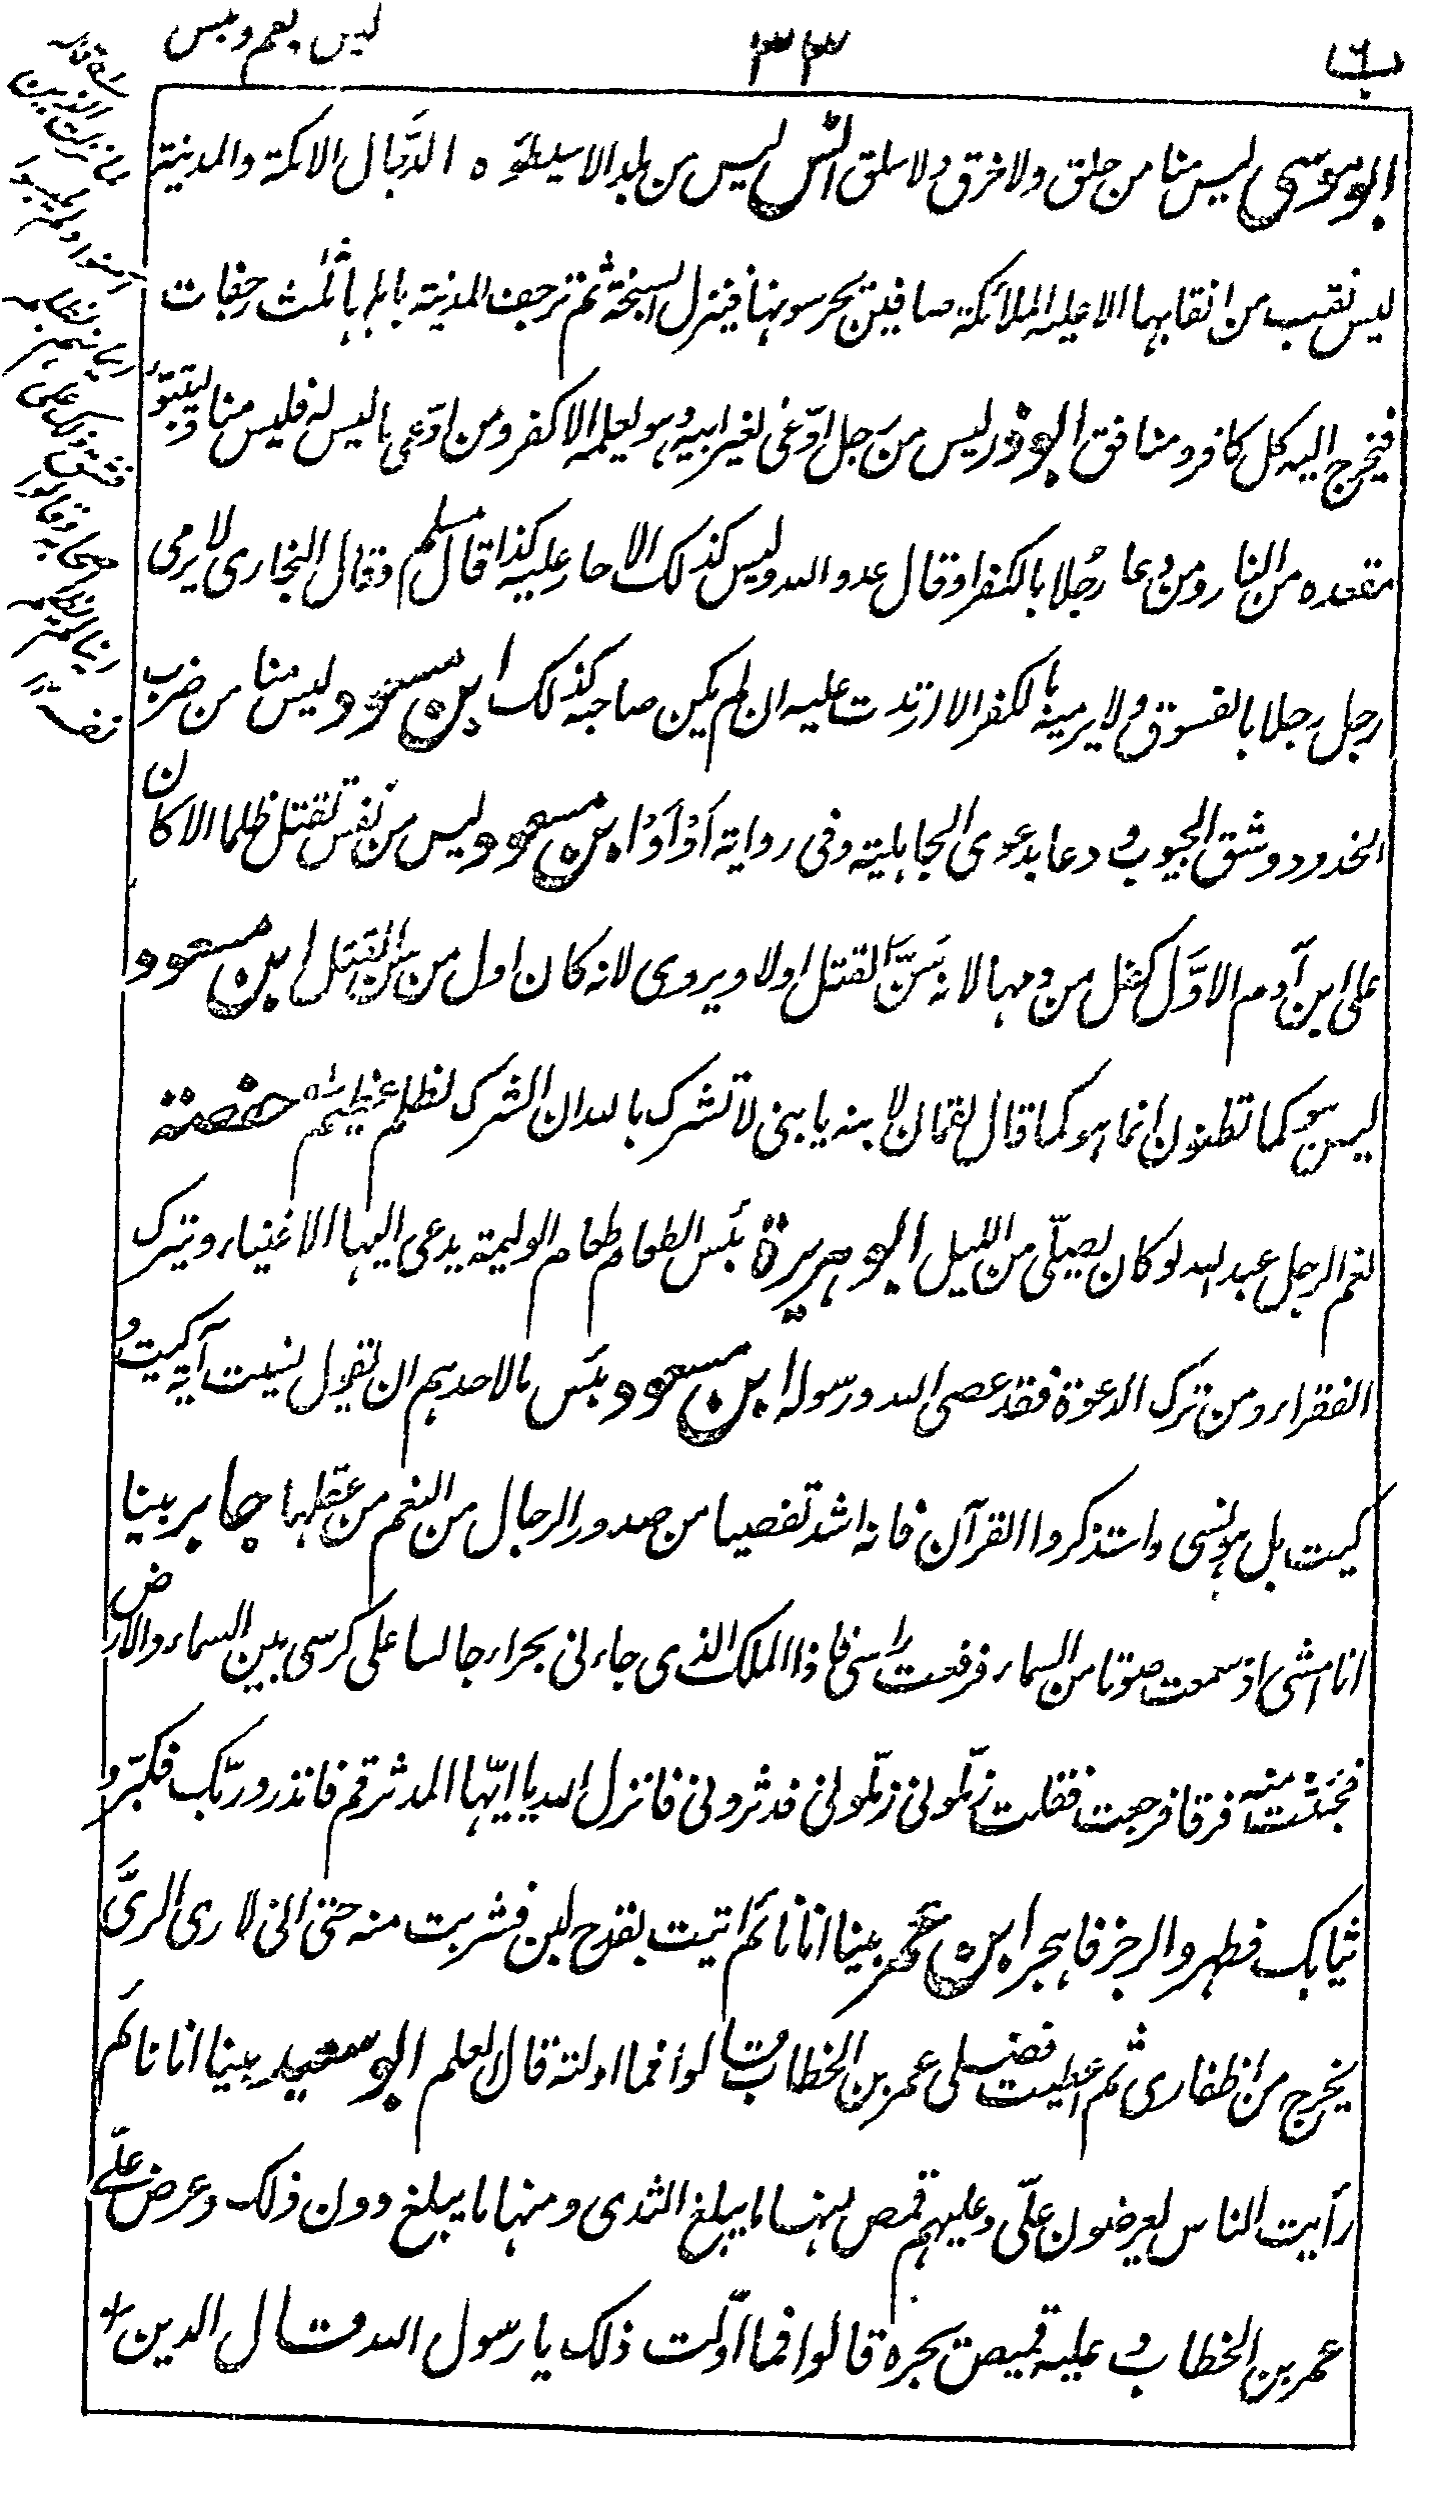 ب ٦
٣٣
ليس نعم وبئس
ابو موسى ليس منا من حلق ولا خرق ولا سلق انس ليس من بلد الا سيطؤه الدجال الا مكة والمدينة
ليس نقب من انقابها الا عليه الملائكة صافين يحرسونها فينزل السبخة ثم ترجف المدينة باهلها ثلث رجفات
فيخرج اليه كل كافر ومنافق ابو ذر ليس من رجل ادّعى لغير ابيه وهو يعلمه الا كفر ومن ادّعى ما ليس له فليس منا وليتبوّء
مقعده من النار ومن دعا رجلا بالكفر او قال عدو الله وليس كذلك الا حار عليه كذا قال مسلم وقال البخارى لا يرمى
رجل رجلا بالفسوق ولا يرميه بالكفر الا ارتدت عليه ان لم يكن صاحبه كذلك ابن مسعود ليس منا من ضرب
الخدود وشق الجيوب ودعا بدعوى الجاهلية وفى رواية أوْ أوْ ابن مسعود ليس من نفس تقتل ظلما الا كان
على ابن آدم الاوّل كفل من دمها لانه سنّ القتل اولا ويروى لانه كان اول من سن القتل ابن مسعود
ليس هو كما تظنون انما هو كما قال لقمان لابنه يا بنى لا تشرك بالله ان الشرك لظلم عظيم حفصة
نعم الرجل عبد الله لو كان يصلّى من الليل ابو هريرة بئس الطعام طعام الوليمة يدعى اليها الاغنياء ويترك
الفقراء ومن ترك الدعوة فقد عصى الله ورسوله ابن مسعود بئس ما لاحدهم ان يقول نسيت آية كيت و
كيت بل هو نسى واستذكروا القرآن فانه اشد تفصيا من صدور الرجال من النعم من عقلها جابر بينا
انا امشى اذ سمعت صوتا من السماء فرفعت راسى فاذا الملك الذى جاءنى بحراء جالسا على كرسى بين السماء والارض
فجئثت منه فرقا فرجعت فقلت زمّلونى زمّلونى فدثرونى فانزل الله يا ايّها المدثر قم فانذر وربّك فكبّر و
ثيابك فطهر والرجز فاهجر ابن عمر بينا انا نائم اتيت بقدح لبن فشربت منه حتى انى لارى الرىّ
يخرج من اظفارى ثم اعطيت فضلى عمر بن الخطاب قالوا فما اولته قال العلم ابو سعيد بينا انا نائم
رأيت الناس يعرضون علىّ وعليهم قمص منها ما يبلغ الثدى ومنها ما يبلغ دون ذلك وعرض علىّ
عمر بن الخطاب وعليه قميص يجره قالوا فما اوّلت ذلك يا رسول الله قال الدين